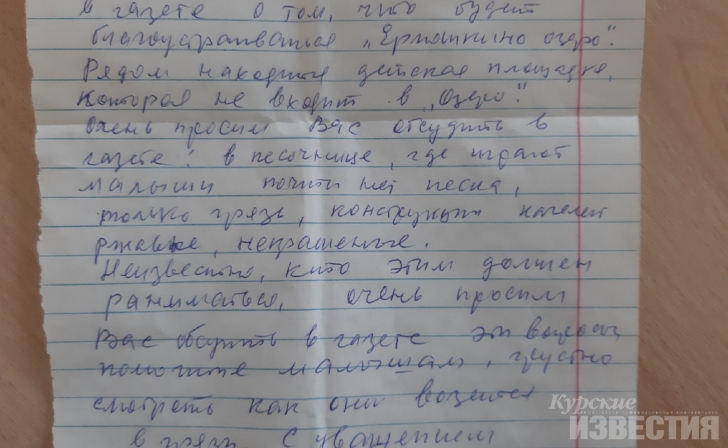 в газете о том, что будет
благоустраиваться „Ермошкино озеро".
Рядом находится детская площадка,
которая не входит в „Озеро".
Очень просим Вас обсудить в
газете: в песочнице, где играют
малыши почти нет песка,
только грязь, конструкции качелей
ржавые, некрашеные.
Неизвестно, кто этим должен
заниматься, очень просим
Вас обсудить в газете эти вопросы
помогите малышам, грустно
смотреть как они возятся
в грязи. С уважением
Курские
ИЗВЕСТИЯ